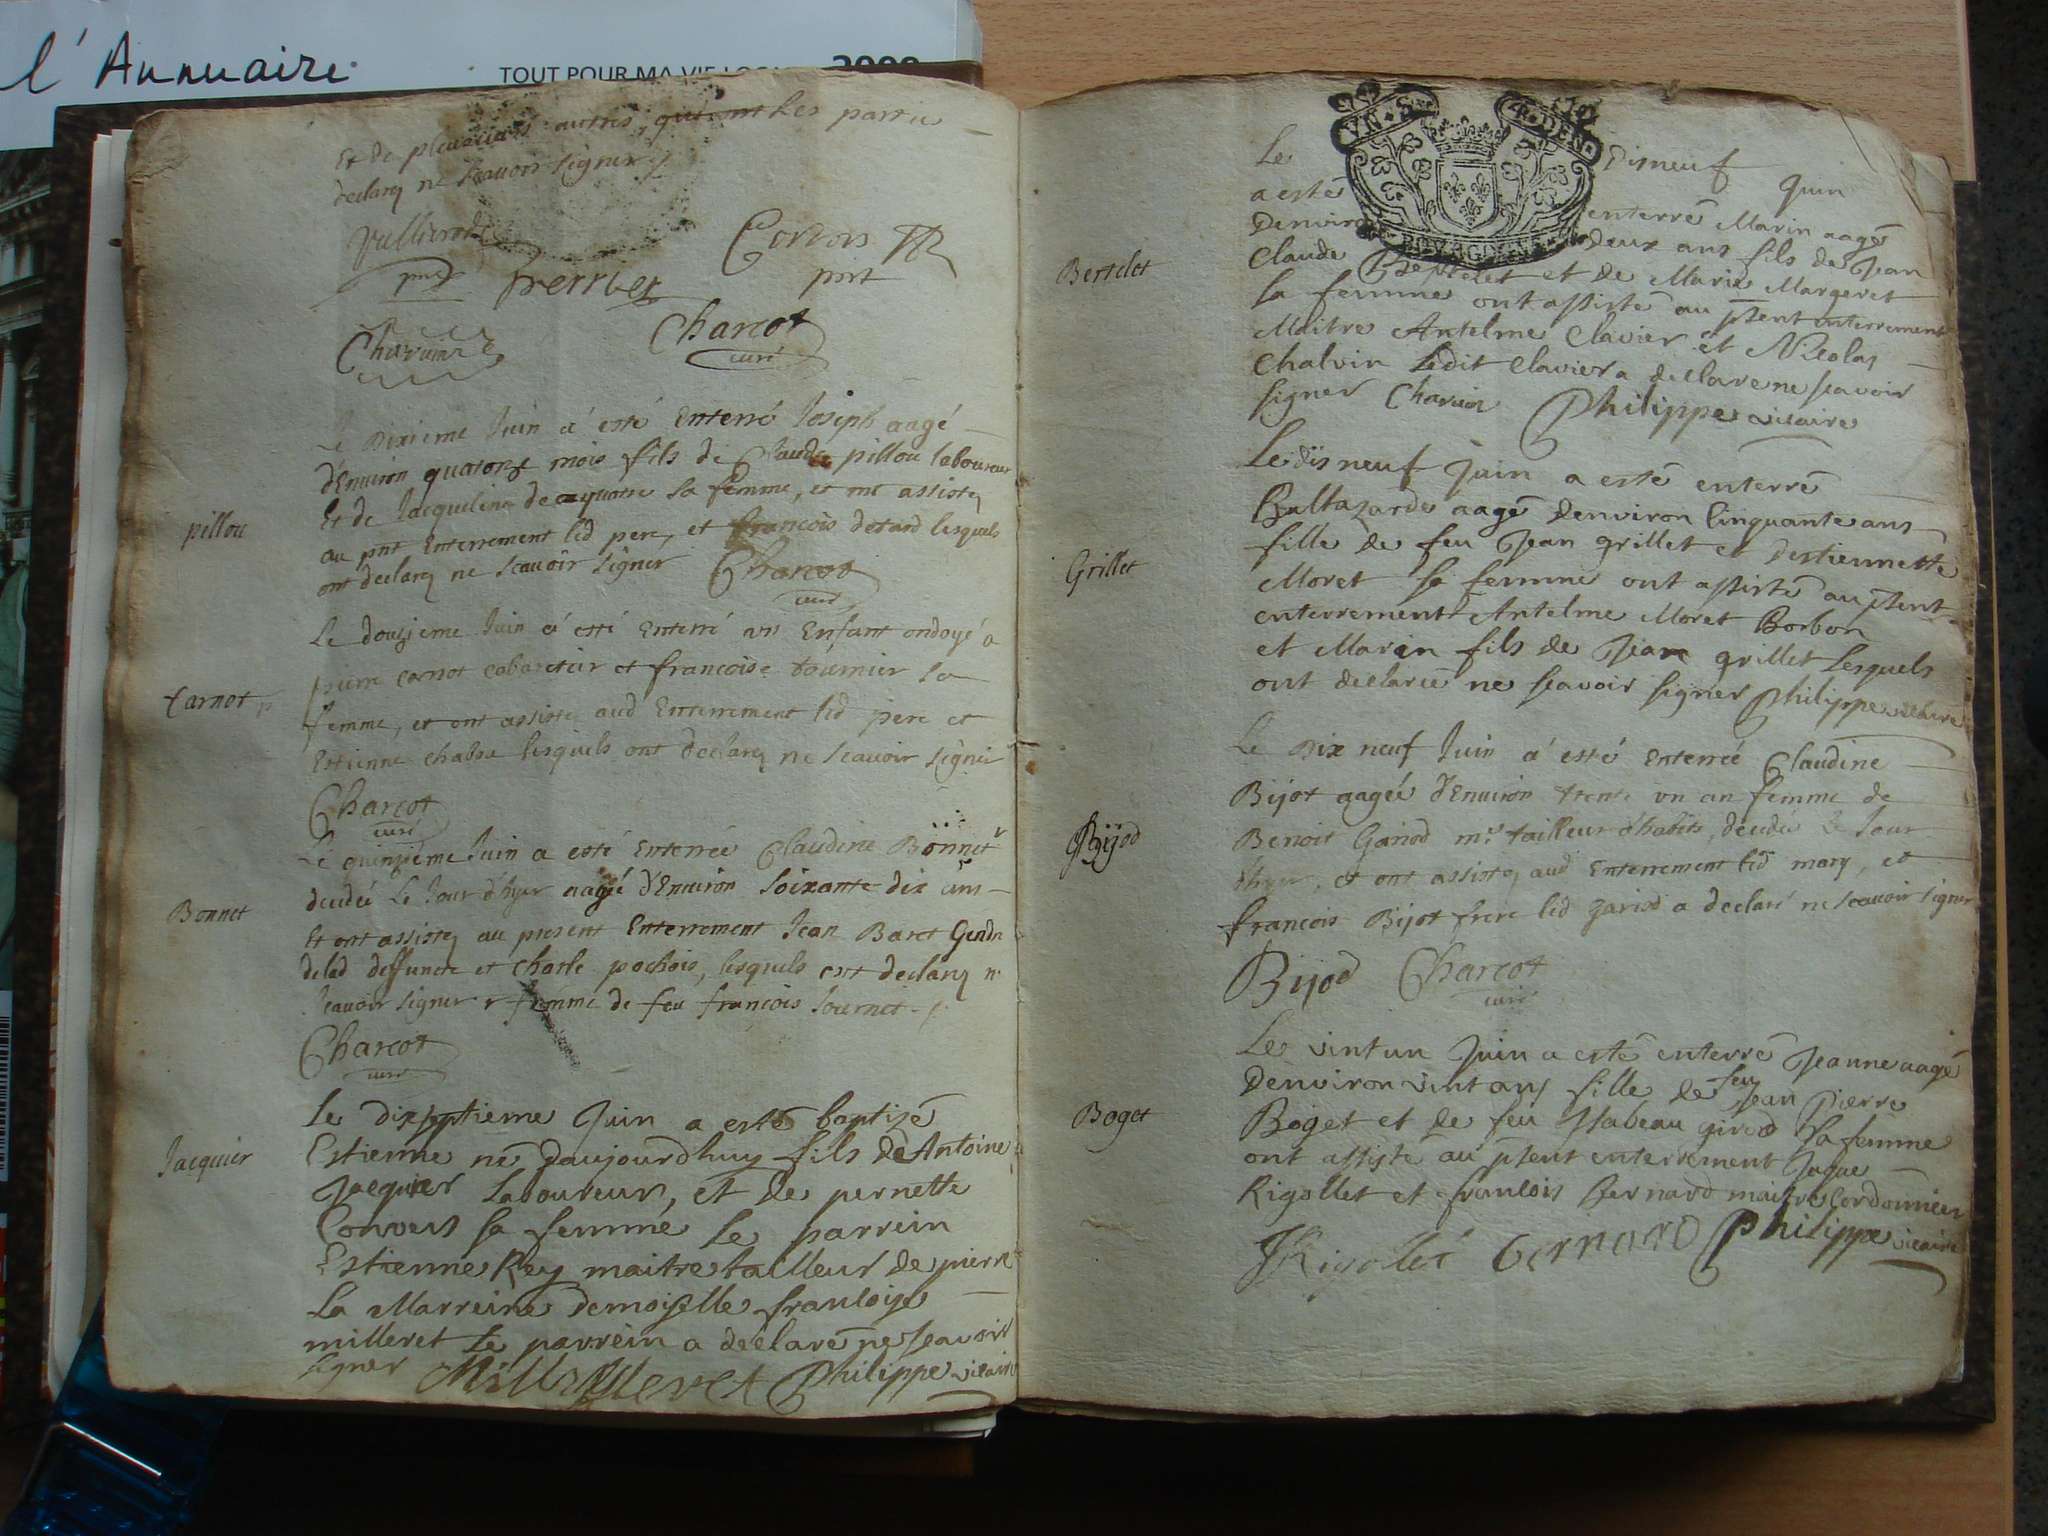 l'Annuaire
TOUT POUR MA VIE
Et de plusieurs autres, qui ont les parties
declaré ne scavoir signer
Perrier
pnt
Charcot
curé
Le dixieme Juin a esté Enterré Joseph aagé
d'Environ quatorze mois fils de Claude pillou laboureur
pillou
Et de Jacqueline sa femme, et ont assistez
au pnt Enterrement led pere, et francois detard lesquels
ont declarez ne scavoir signer Charcot
curé
Le douzieme Juin a esté Enterré un Enfant ondoyé a
pierre carnot cabaretier et francoise tournier sa
Carnot
femme, et ont assistez aud Enterrement led pere et
Estienne chabba lesquels ont declarez ne scavoir signer
Charcot
curé
Le quinzième Juin a esté Enterrée Claudine Bonnet
decedée Le Jour d'hyer aagée d'Environ soixante dix ans
Bonnet
Et ont assistez au present Enterrement Jean Baret Gendre
delad deffuncte et charle pochois, lesquels ont declarez ne
scavoir signer femme de feu francois
Charcot
curé
Le dixseptieme Juin a esté baptizé
Jacquier
Estienne né daujourdhuy fils de Antoine
Jacquier Laboureur, et de pernette
Convers sa femme le parrein
Estienne Rey maitre tailleur de pierre
La Marreine demoiselle francoise
milleret le parrein a declaré ne scavoir
signer Philippe vicaire
VN S 4 DEN
BOVRGOGNE
Le Disneuf Juin
a esté enterré Marin aagé
Denviron deux ans fils de Jean
Bertelet
Claude Bertelet et de Marie Margeret
sa femme ont assisté au pñent enterrement
Maitre Antelme Clavier et Nicolas
Chalvin Ledit Clavier a declare ne scavoir
signer Philippe vicaire
Le dis neuf Juin a esté enterré
Baltazarde aagé denviron Cinquante ans
fille de feu Jean grillet et destiennette
Grillet
Moret sa femme ont assisté au pñent
enterrement Antelme Moret Borbon
et Marin fils de Jean grillet Lesquels
ont declaré ne scavoir signer Philippe vicaire
Le Dix neuf Juin a esté Enterrée Claudine
Bijot aagée d'Environ trente un an femme de
Bijod
Benoit Gariod mre tailleur d'habits, decedée Le Jour
d'hyer, et ont assistez aud Enterrement led mary, et
francois Bijot frere led gariod a declaré ne scavoir signer
Bijod Charcot
curé
Le vint un Juin a esté enterré Jeanne aagé
Denviron vint ans fille de feu Jean Pierre
Boget
Boget et de feu Isabeau girod sa femme
ont assisté au pñent enterrement Jaque
Rigollet et francois Bernard maitre Cordonnier
JRigollet bernard Philippe vicaire